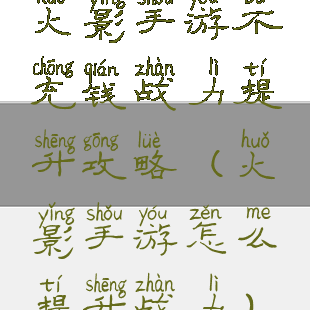 huǒ yǐng shǒu yóu bù
火影手游不
chōng qián zhàn lì tí
充钱战力提
shēng gōng lüè huǒ
升攻略（火
yǐng shǒu yóu zěn me
影手游怎么
tí shēng zhàn lì
提升战力）